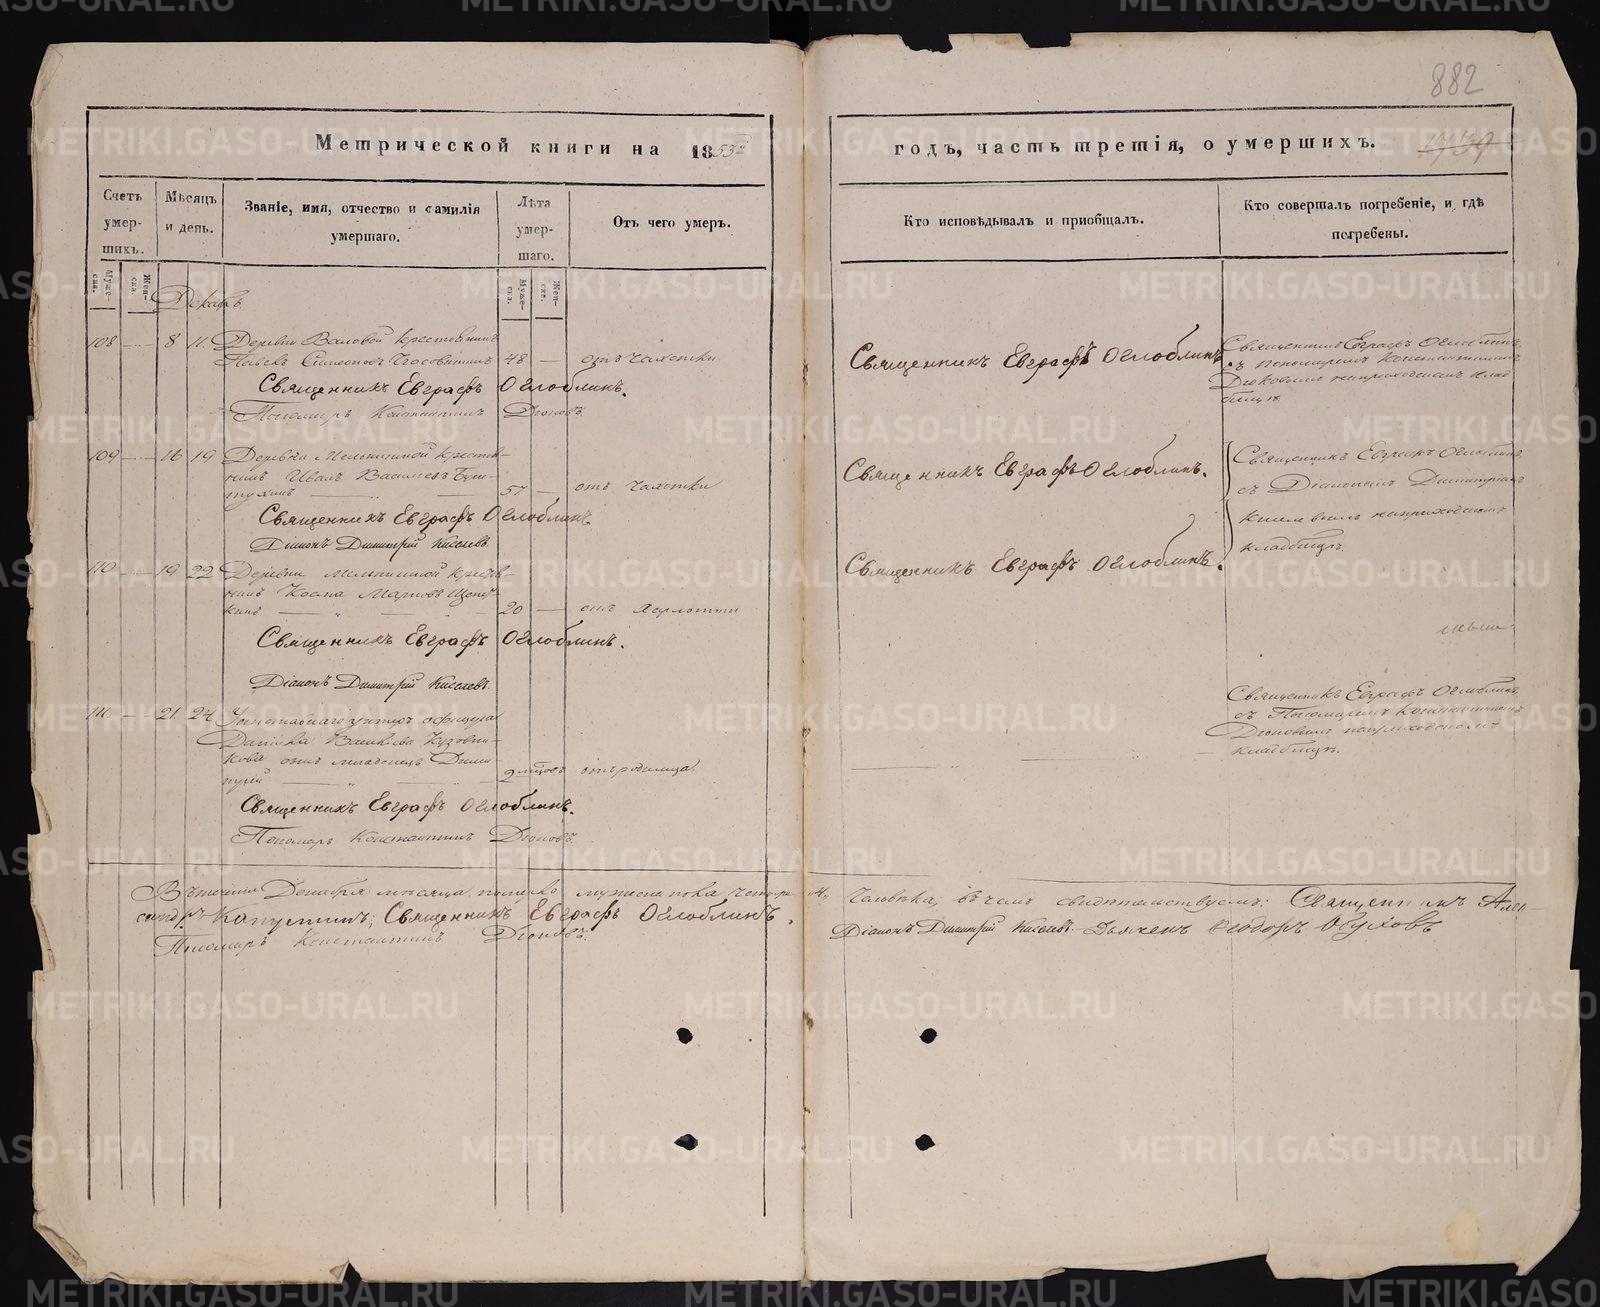 882
Метрической книги на 1853й годъ, часть третія, о умершихъ.
Счетъ умершихъ.
Мѣсяцъ и день.
Званіе, имя, отчество и фамилія умершаго.
Лѣта умершаго.
Отъ чего умеръ.
Кто исповѣдывалъ и приобщалъ.
Кто совершалъ погребеніе, и гдѣ погребены.
Мужеска.
Женска.
Мужеска.
Женска.
Декабрь
108 8 11 Деревни Валовой крестьянинъ
Павелъ Симеоновъ 48 отъ чахотки
Священникъ Евграфъ Оглоблинъ.
Пономарь Константинъ Діоновъ.
Священникъ Евграфъ Оглоблинъ
Священникъ Евграфъ Оглоблинъ
съ пономаремъ Константиномъ
на приходскомъ клад-
бищѣ
109 16 19 Деревни Мельничной крестья-
нинъ Иванъ Васильевъ
57 отъ чахотки
Священникъ Евграфъ Оглоблинъ
Діаконъ Димитрій Киселевъ
Священникъ Евграфъ Оглоблинъ.
Священникъ Евграфъ Оглоблинъ
съ Діакономъ Димитріемъ
Киселевымъ на приходскомъ
кладбищѣ.
110 19 22 Деревни Мельничной крестья-
нинъ Косма Марковъ
20 отъ
Священникъ Евграфъ Оглоблинъ.
Діаконъ Димитрій Киселевъ
Священникъ Евграфъ Оглоблинъ.
111 21 24 унтеръ офицера
Данила Васильева Кузовни-
кова сынъ младенецъ Дими-
трій 2 мѣсяцовъ отъ родимца
Священникъ Евграфъ Оглоблинъ.
Пономарь Константинъ Діоновъ.
Священникъ Евграфъ Оглоблинъ
съ Пономаремъ Константиномъ
на приходскомъ
кладбищѣ.
Въ теченіи Декабря мѣсяца мужеска пола четыре 4. Человѣка; въ чемъ свидѣтельствуемъ: Священникъ Алек-
сандръ Капустинъ; Священникъ Евграфъ Оглоблинъ. Діаконъ Димитрій Киселевъ. Дьячекъ Ѳеодоръ Обуховъ
Пономарь Константинъ Діоновъ.
METRIKI.GASO-URAL.RU